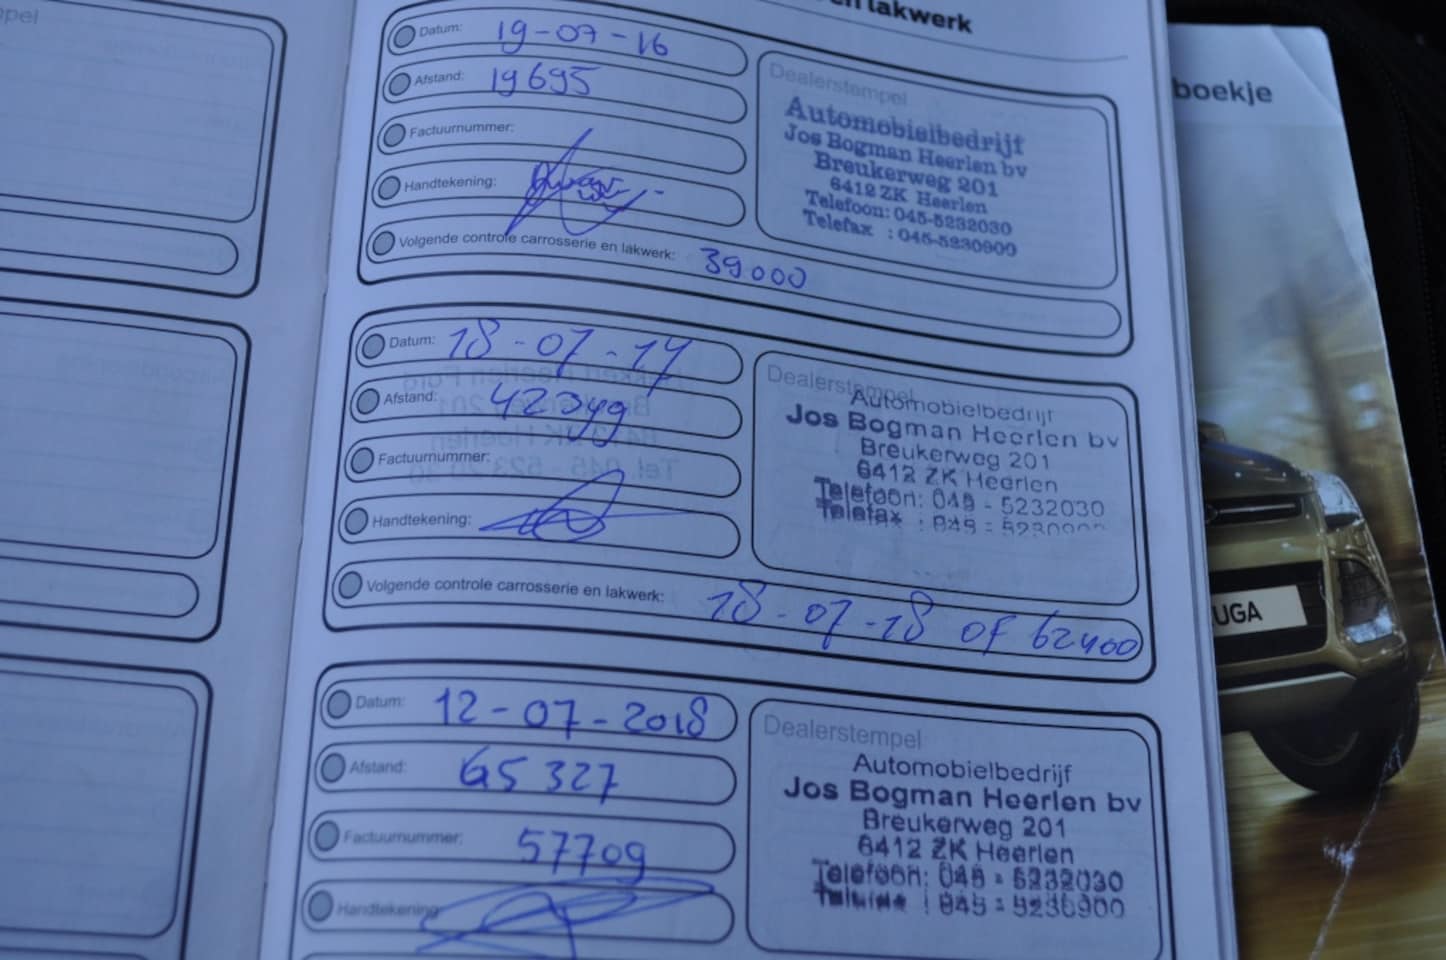 en lakwerk
Datum: 19-07-16
Afstand: 19695
Factuurnummer:
Handtekening:
Volgende controle carrosserie en lakwerk: 39000
Dealerstempel
Automobielbedrijf
Jos Bogman Heerlen bv
Breukerweg 201
6412 ZK Heerlen
Telefoon: 045-5232030
Telefax : 045-5230900
Datum: 18-07-17
Afstand:
Factuurnummer:
Handtekening:
Volgende controle carrosserie en lakwerk: 18-07-18 OF 62400
Dealerstempel
Automobielbedrijf
Jos Bogman Heerlen bv
Breukerweg 201
6412 ZK Heerlen
Telefoon: 045 - 5232030
Telefax : 045 - 5230900
Datum: 12-07-2018
Afstand: 65327
Factuurnummer: 57709
Handtekening:
Dealerstempel
Automobielbedrijf
Jos Bogman Heerlen bv
Breukerweg 201
6412 ZK Heerlen
Telefoon: 045 - 5232030
045 - 5230900
boekje
UGA